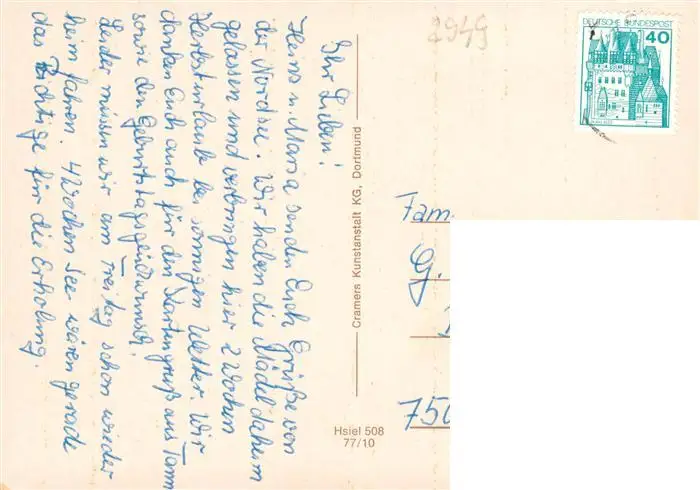 Ihr Lieben!
Heinz u. Maria senden Euch Grüße von
der Nordsee. Wir haben die Mädel daheim
gelassen und verbringen hier 2 Wochen
Herbsturlaub bei sonnigen Wetter. Wir
danken Euch auch für den Kartengruß aus Tann
sowie den Geburtstagsglückwunsch!
Leider müssen wir am Freitag schon wieder
heim fahren. 4 Wochen See wären gerade
das Richtige für die Erholung.
Cramers Kunstanstalt KG, Dortmund
Hsiel 508
77/10
2949
DEUTSCHE BUNDESPOST
40
Fam
G.
750